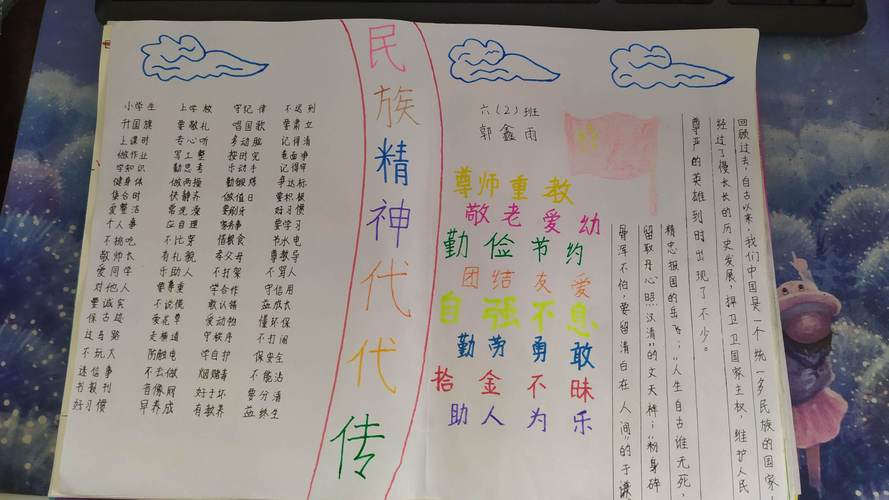 民族精神代代传
小学生 上学校 守纪律 不迟到
升国旗 要敬礼 唱国歌 要肃立
上课时 专心听 多动脑 记得清
做作业 写工整 按时完 卷面净
学知识 勤思考 乐动手 记得牢
健身体 做两操 勤锻炼 争达标
集合时 快静齐 做值日 要积极
爱整洁 常洗澡 要刷牙 好习惯
个人事 应自理 家务事 要学习
不挑吃 不比穿 惜粮食 节水电
敬师长 有礼貌 孝父母 尊教导
爱同学 乐助人 不打架 不骂人
对他人 要尊重 学合作 守信用
要诚实 不说谎 敢认错 益成长
保古迹 爱花草 爱动物 懂环保
过马路 走横道 守秩序 不打闹
不玩火 防触电 学自护 保安全
迷信事 不去做 烟赌毒 不能沾
书报刊 音像网 好于坏 要分清
好习惯 早养成 有教养 益终生
六（2）班
郭鑫雨
尊师重教
敬老爱幼
勤俭节约
团结友爱
自强不息
勤劳勇敢
拾金不昧
助人为乐
回顾过去，自古以来，我们中国是一个统一多民族的国家
经过了慢长长的历史发展，捍卫卫国家主权，维护人民
尊严的英雄到时出现了不少。
精忠报国的岳飞；“人生自古谁无死，
留取丹心照汉清”的文天祥；“粉身碎
骨浑不怕，要留清白在人间”的于谦